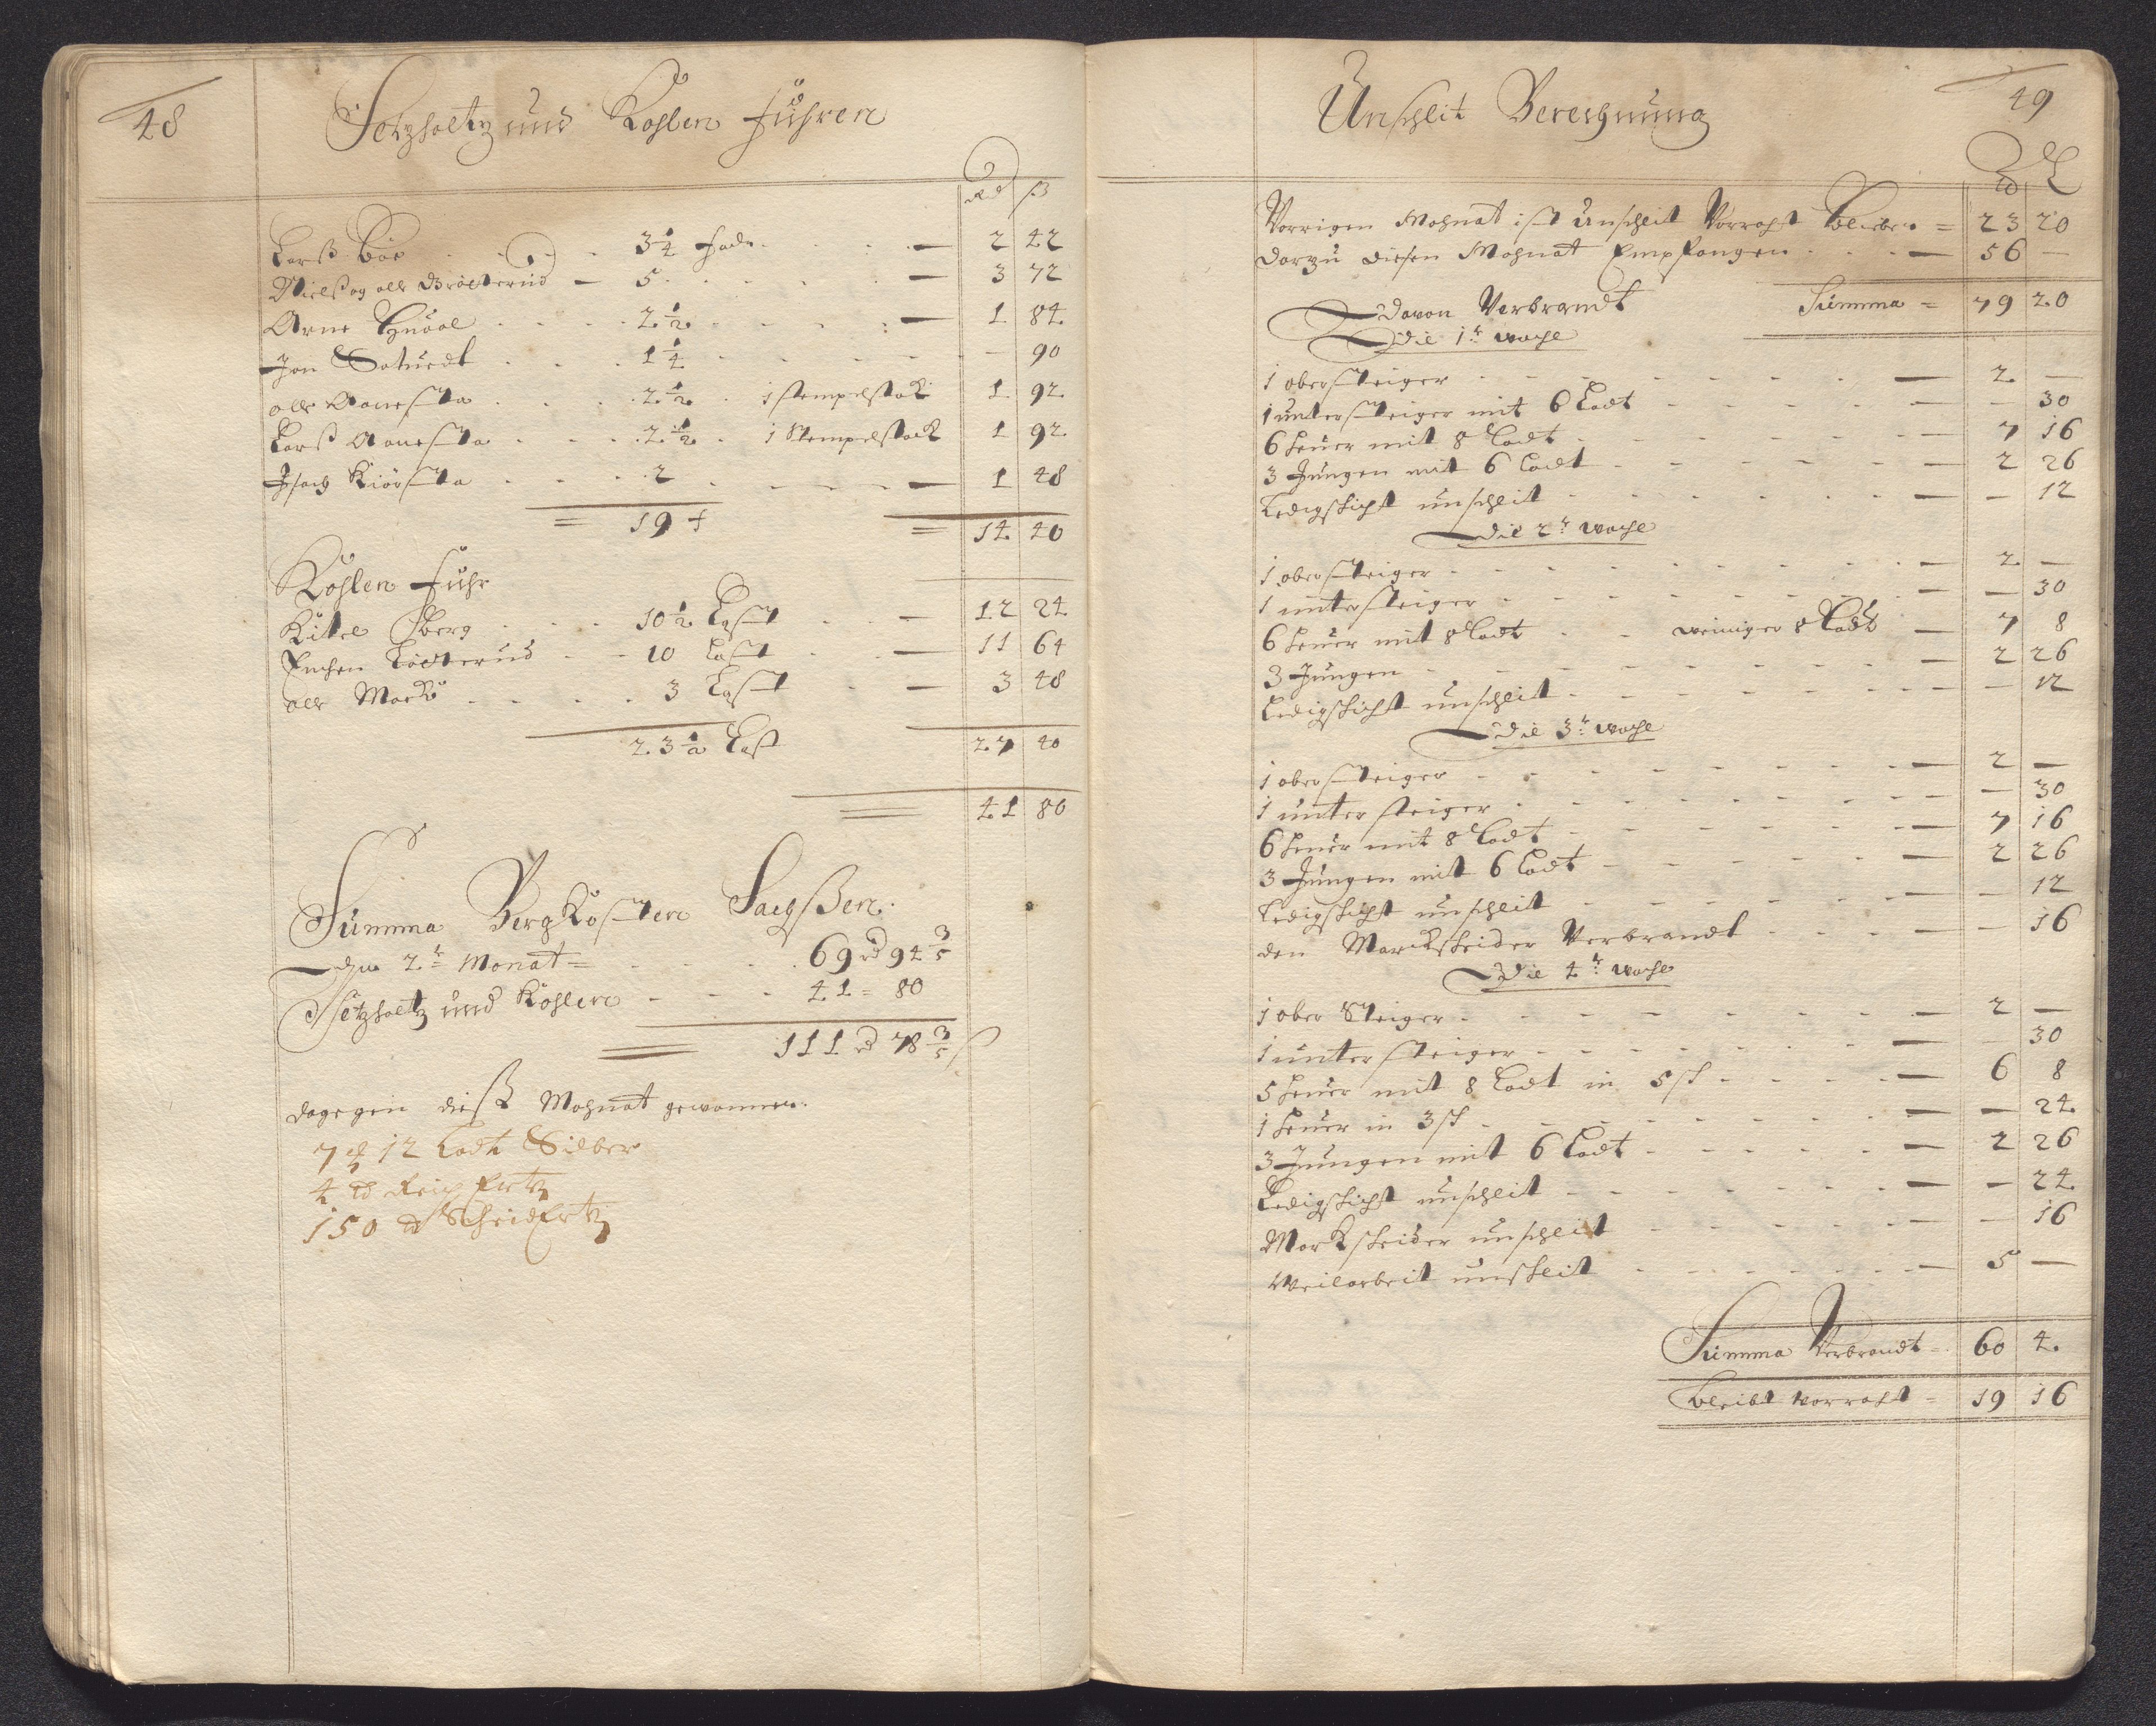 48
Setzholtz und Kohlen fuhren
rd ß
Larß Böe 3¼ fade — 2 42
Nielß og olle Brötterud — 5 — 3 72
Arne 2½ — 1 84
Jon 1¼ — 90
olle 2½ 1 stempelstock 1 92
Larß 2½ 1 Stempelstock 1 92
Isach 2 — 1 48
= 19 f = 14 40
Kohlen fuhr
Kittel Berg 10½ Last — 12 24
10 Last — 11 64
olle 3 Last — 3 48
23½ Last 27 40
41 80
Summa Bergkosten Sachßen
den 2ᵗ Monat = 69 rd 94 3/5
Setzholtz und Kohlen 41 = 80
111 rd 78 3/5 ß
dagegen dieße Mohnat gewonnen
7 12 Lodt Silber
4 Reich Ertz
150 ScheidErtz
49
Unschlit Berechnung
Vorrigen Mohnat ist Unschlit Vorraht blieben = 23 20
darzu diesen Mohnat Empfangen — 56 —
Summa = 79 20
Davon Verbrandt
Die 1ᵗ woche
1 obersteiger — 2 —
1 untersteiger mit 6 Lodt — 30
6 heuer mit 8 Lodt — 7 16
3 Jungen mit 6 Lodt — 2 26
Ledigschicht unschlit — — 12
Die 2ᵗ woche
1 obersteiger — 2 —
1 untersteiger — — 30
6 heuer mit 8 Lodt weiniger 8 Lodt — 7 8
3 Jungen — 2 26
Ledigschicht unschlit — — 12
Die 3ᵗ woche
1 obersteiger — 2 —
1 unter steiger — — 30
6 heuer mit 8 Lodt — 7 16
3 Jungen mit 6 Lodt — 2 26
Ledigschicht unschlit — — 12
den Marckscheider Verbrandt — — 16
Die 4ᵗ woche
1 ober Steiger — 2 —
1 untersteiger — — 30
5 heuer mit 8 Lodt in 5 sch — 6 8
1 heuer in 3 sch — — 24
3 Jungen mit 6 Lodt — 2 26
Ledigschicht unschlit — — 24
Markscheider unschlit — — 16
Weilarbeit unschlit — 5 —
Summa Verbrandt = 60 4
Bleibt vorraht = 19 16